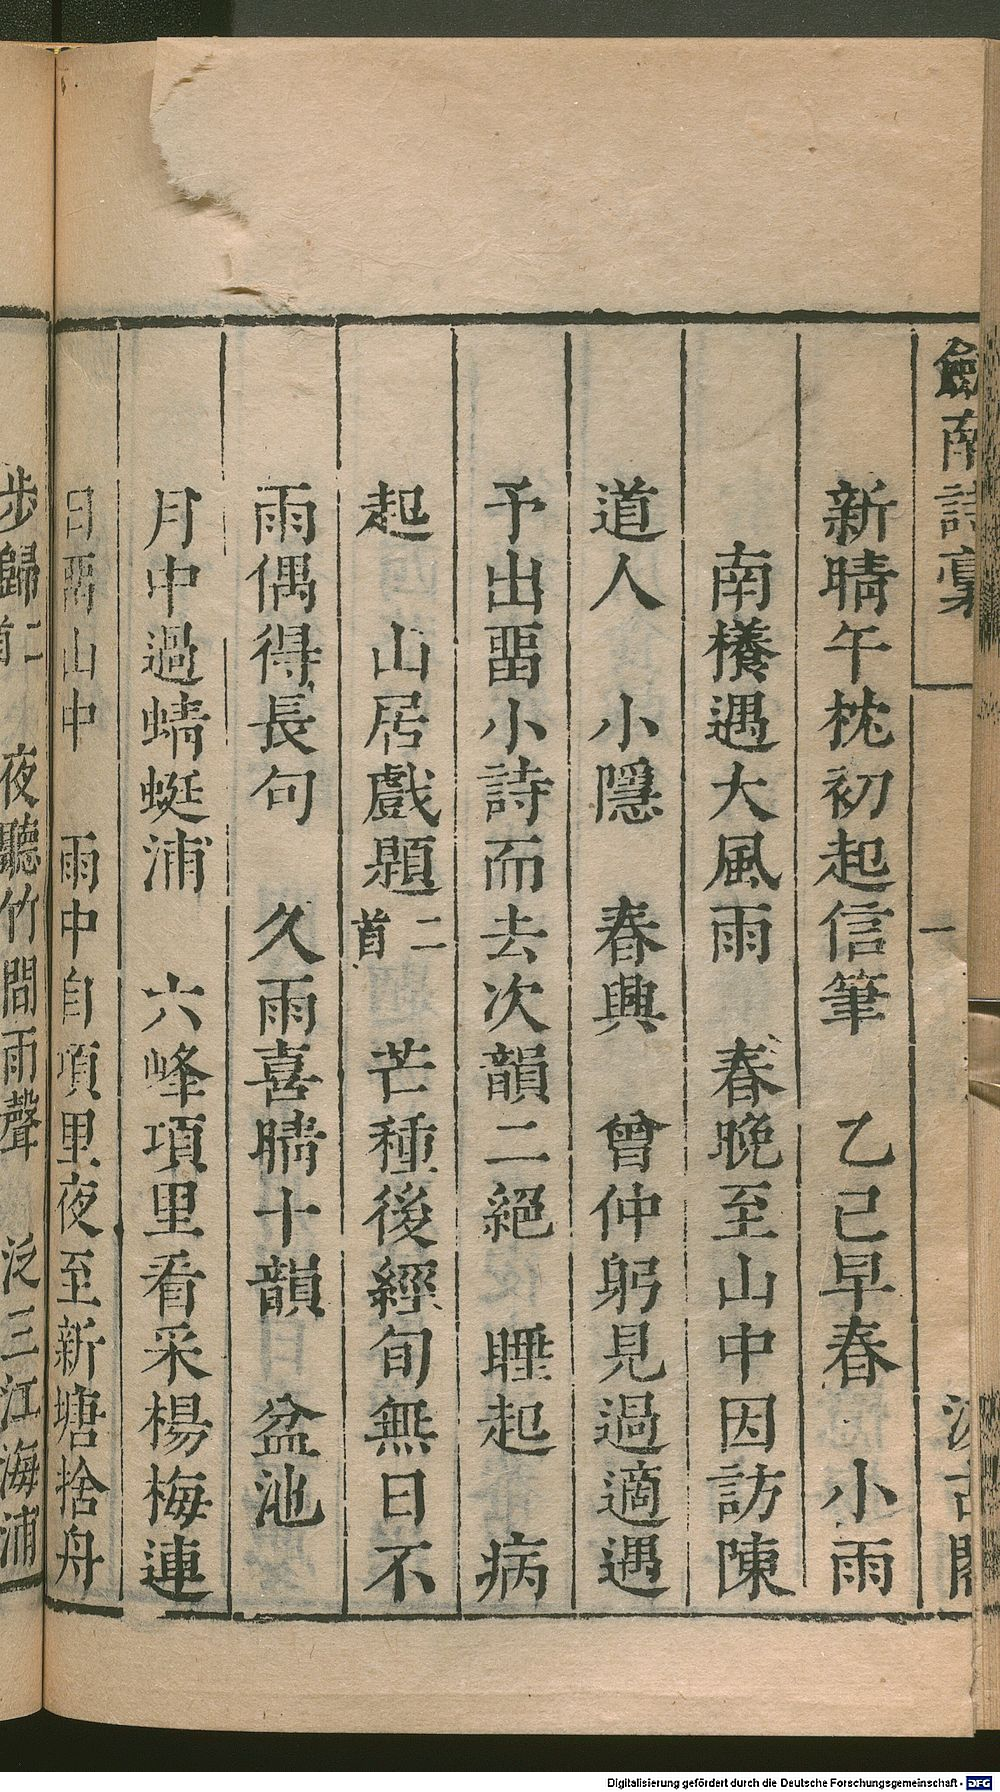 劍南詩稾
一
汲古閣
新晴午枕初起信筆　乙己早春　小雨
南檥遇大風雨　春晚至山中因訪陳
道人　小隱　春興　曾仲躬見過適遇
予出畱小詩而去次韻二絕　睡起　病
起　山居戲題二首　芒種後經旬無日不
雨偶得長句　久雨喜晴十韻　盆池
月中過蜻蜓浦　六峰項里看采楊梅連
日畱山中　雨中自項里夜至新塘捨舟
步歸二首　夜聽竹間雨聲　泛三江海浦
Digitalisierung gefördert durch die Deutsche Forschungsgemeinschaft - DFG